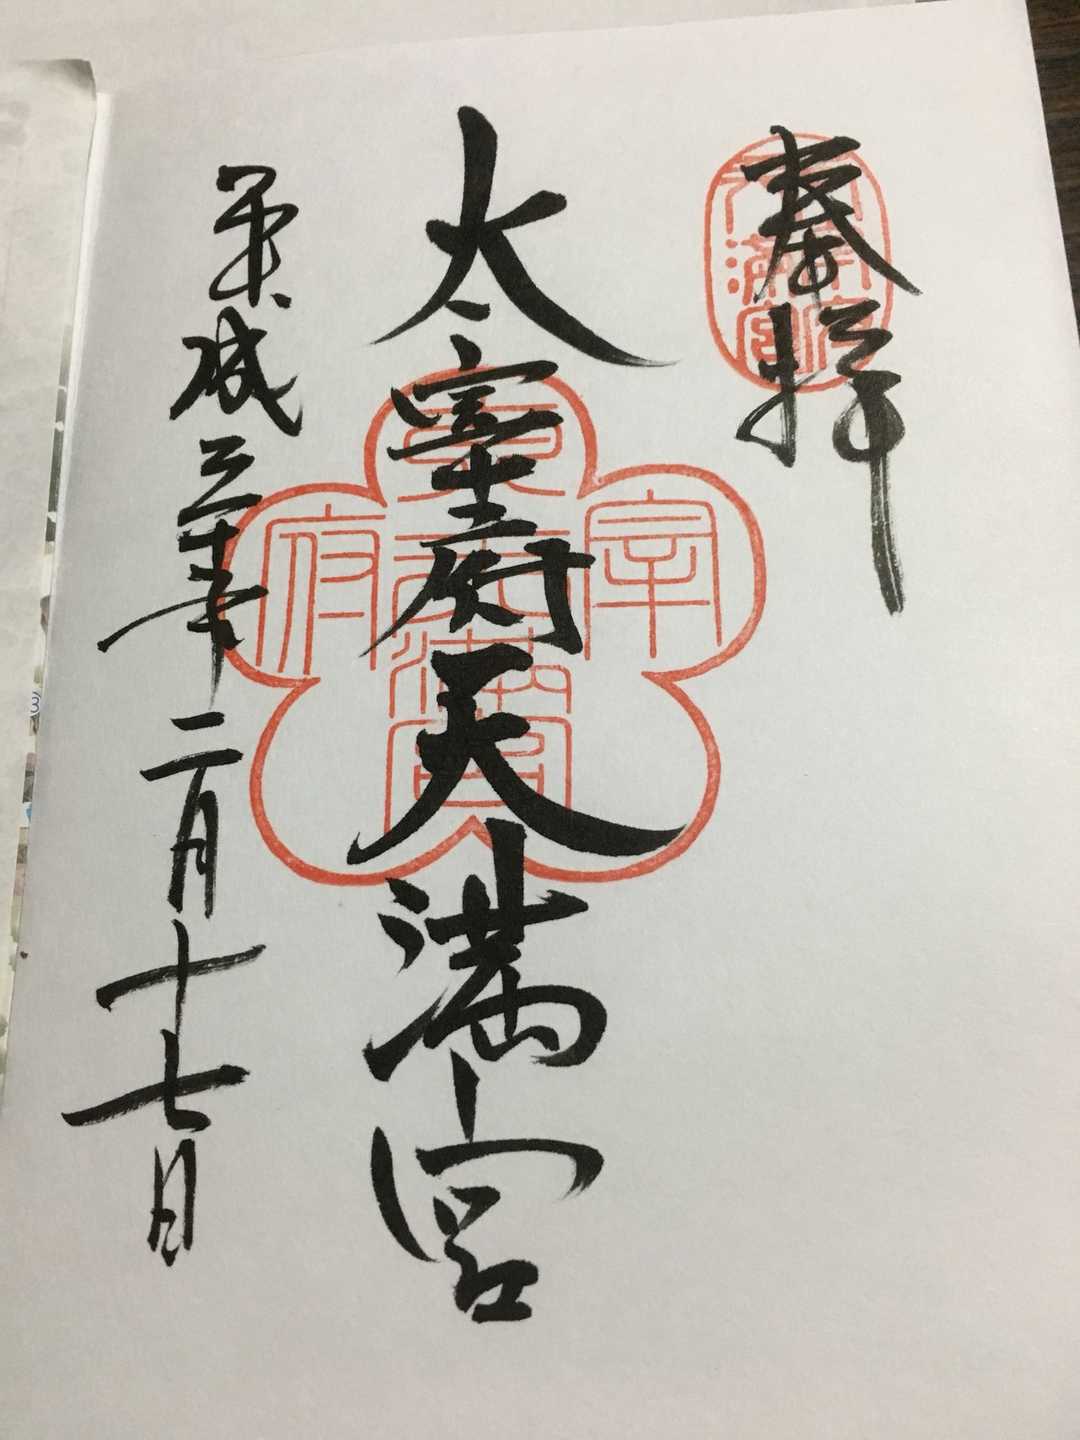 奉拝
太宰府天満宮
平成三十年二月十七日
太宰府天満宮
③